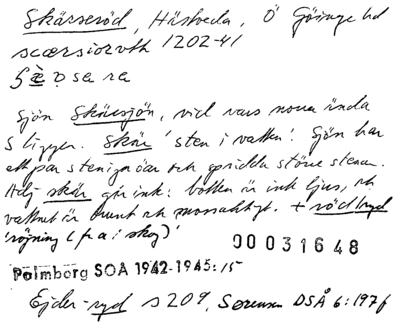 Skärseröd, Hästveda, Ö Göinge hd
scærsiorvth 1202-41
Sjön Skärsjön, vid vars norra ända
S ligger. Skär 'sten i vatten'. Sjön har
ett par steniga öar och spridda större stenar.
Adj skär går ink: botten är ink ljus, och
vattnet är brunt och mossaktigt. + rödhyd
'röjning (fr a i skog)'
00031648
Palmborg SOÅ 1942-1945:15
Ejder-ryd s 209, Sørensen DSÅ 6:197f